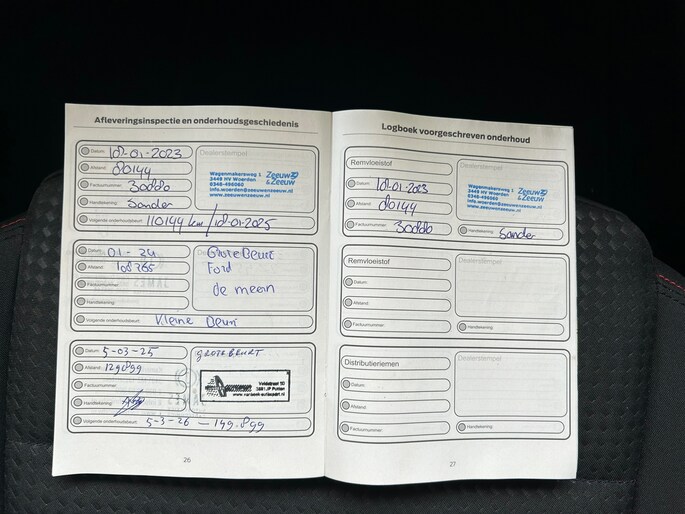 Afleveringsinspectie en onderhoudsgeschiedenis
Datum: 18-01-2023
Afstand: 80144
Factuurnummer:
Handtekening: Sander
Volgende onderhoudsbeurt: 110144 km / 18-01-2025
Dealerstempel
Wagenmakersweg 1
3449 HV Woerden
0348-496060
info.woerden@zeeuwenzeeuw.nl
www.zeeuwenzeeuw.nl
Zeeuw
&Zeeuw
Datum: 01-24
Afstand: 108765
Factuurnummer:
Handtekening:
Volgende onderhoudsbeurt: Kleine Beurt
Grote Beurt
Ford
de meern
Datum: 5-03-25
Afstand: 129899
Factuurnummer:
Handtekening:
Volgende onderhoudsbeurt: 5-3-26 - 149.899
GROTE BEURT
26
Logboek voorgeschreven onderhoud
Remvloeistof
Datum: 18-01-2023
Afstand: 80144
Factuurnummer:
Dealerstempel
Wagenmakersweg 1
3449 HV Woerden
0348-496060
info.woerden@zeeuwenzeeuw.nl
www.zeeuwenzeeuw.nl
Zeeuw
&Zeeuw
Handtekening: Sander
Remvloeistof
Datum:
Afstand:
Factuurnummer:
Dealerstempel
Handtekening:
Distributieriemen
Datum:
Afstand:
Factuurnummer:
Dealerstempel
Handtekening:
27